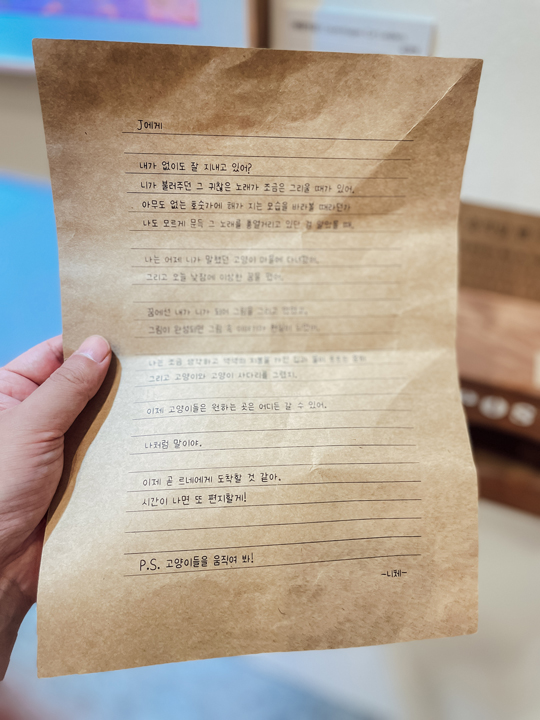 J에게
내가 없이도 잘 지내고 있어?
니가 불러주던 그 귀찮은 노래가 조금은 그리울 때가 있어.
아무도 없는 호숫가에 해가 지는 모습을 바라볼 때라던가
나도 모르게 문득 그 노래를 흥얼거리고 있단 걸 알았을 때.
나는 어제 니가 말했던 고양이 마을에 다녀왔어.
그리고 오늘 낮잠에 이상한 꿈을 꿨어.
꿈에선 내가 니가 되어 그림을 그리고 있었고,
그림이 완성되면 그림 속 이야기가 현실이 되었어.
나는 조금 생각하고 지붕을 가진 집과
그리고 고양이와 고양이 사다리를 그렸지.
이제 고양이들은 원하는 곳은 어디든 갈 수 있어.
나처럼 말이야.
이제 곧 르네에게 도착할 것 같아.
시간이 나면 또 편지할게!
P.S. 고양이들을 움직여 봐!
-니제-